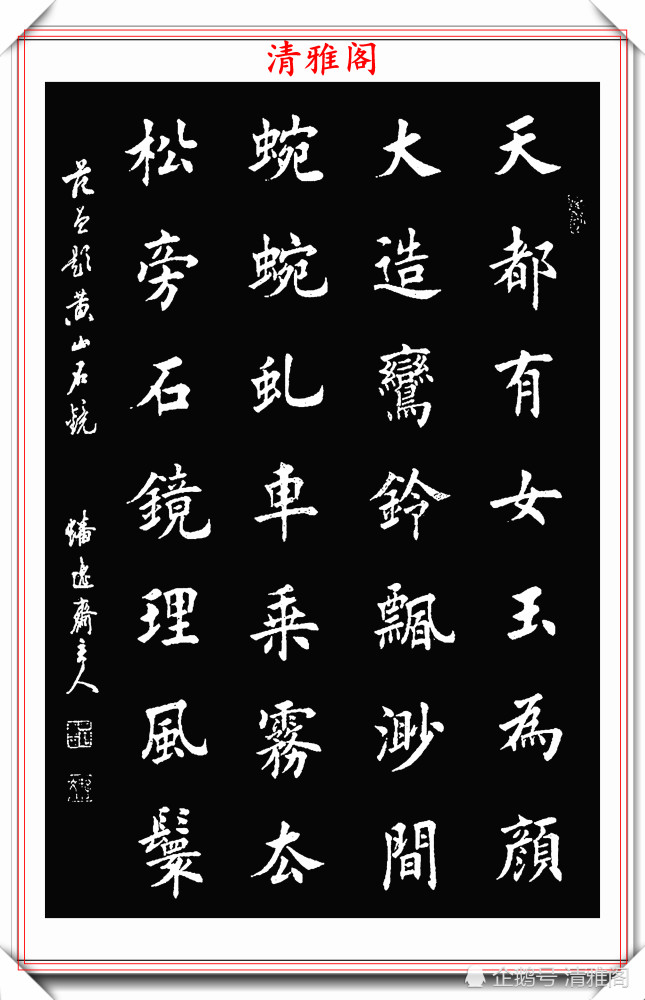 清雅阁
天都有女玉為顏
大造鸞鈴飄渺間
蜿蜿虬車乗霧厺
松旁石鏡理風鬟
題黄山石鏡
齋主人
企鹅号 清雅阁